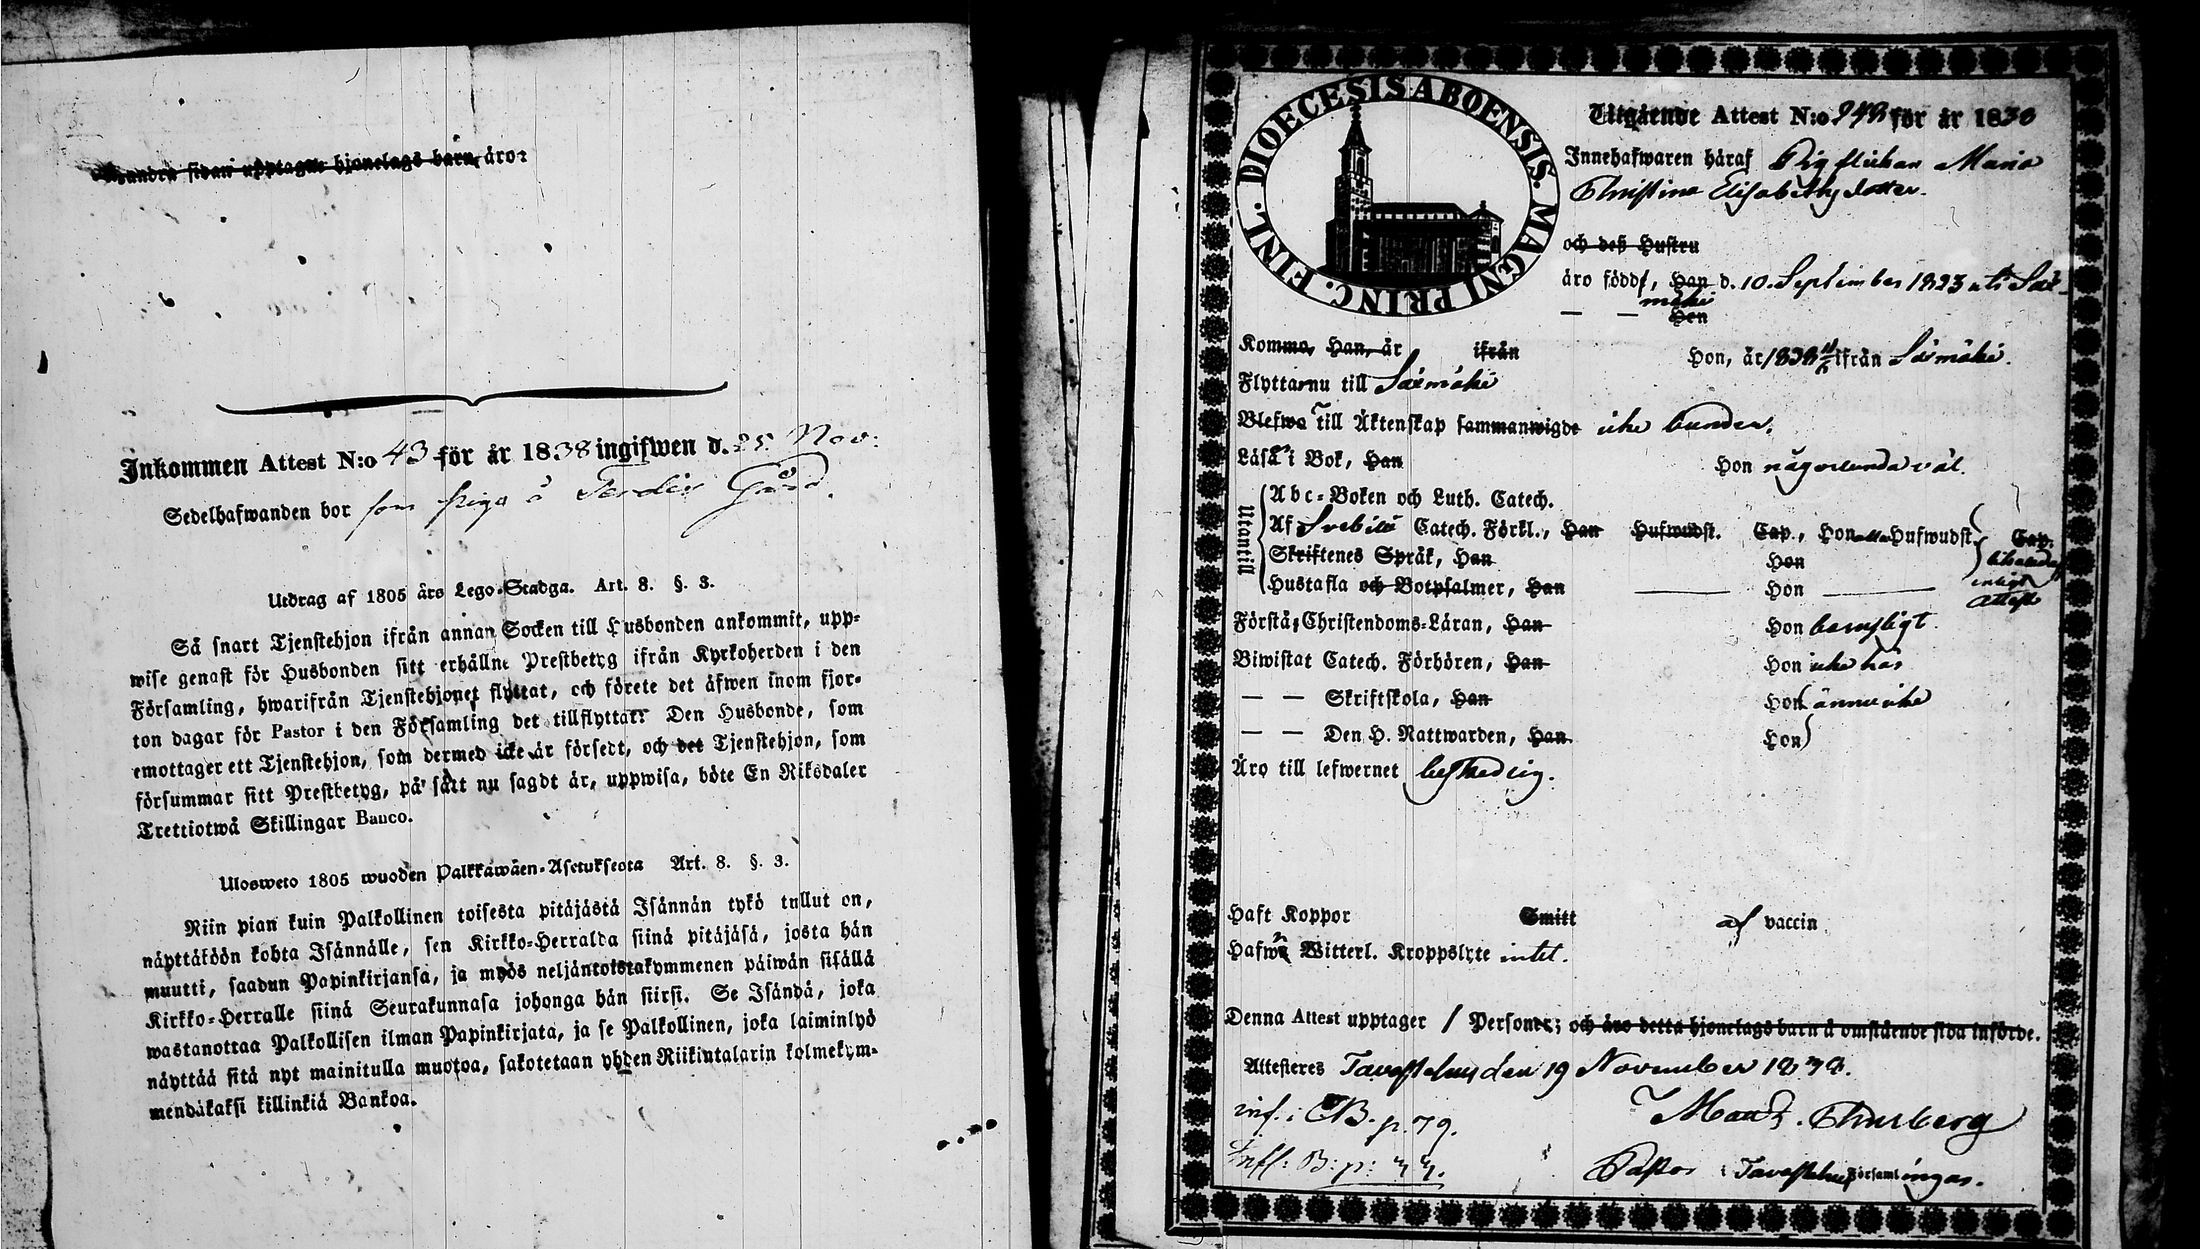 sidan upptagne hjonelags barn, äro:
Inkommen Attest N:o 43 för år 1838 ingifwen d. 25. Nov:
Sedelhafwanden bor som piga å Gård.
Utdrag af 1805 års Lego-Stadga. Art. 8. §. 3.
Så snart Tjenstehjon ifrån annan Socken till Husbonden ankommit, upp-
wise genast för Husbonden sitt erhållne Prestbetyg ifrån Kyrkoherden i den
Församling, hwarifrån Tjenstehjonet flyttat, och förete det äfwen inom fjor-
ton dagar för Pastor i den Församling det tillflyttat. Den Husbonde, som
emottager ett Tjenstehjon, som dermed icke är försedt, och det Tjenstehjon, som
försummar sitt Prestbetyg, på sätt nu sagdt är, uppwisa, böte En Riksdaler
Trettiotwå Skillingar Banco.
Ulosweto 1805 wuoden Palkkawäen-Asetuksesta Art. 8. §. 3.
Niin pian kuin Palkollinen toisesta pitäjästä Isännän tykö tullut on,
näyttäköön kohta Isännälle, sen Kirkko-Herralda siinä pitäjäsä, josta hän
muutti, saadun Papinkirjansa, ja myös neljäntoistakymmenen päiwän sisällä
Kirkko-Herralle siinä Seurakunnasa johonga hän siirsi. Se Isändä, joka
wastanottaa Palkollisen ilman Papinkirjata, ja se Palkollinen, joka laiminlyö
näyttää sitä nyt mainitulla muotoa, sakotetaan yhden Riikintalarin kolmekym-
mendäkaksi killinkiä Bankoa.
DIOECESIS ABOENSIS. MAGNI PRINC. FINL.
Utgående Attest N:o för år 1838
Innehafwaren häraf Pigflickan Maria
Christina Elisabethsdotter.
och deß Hustru
äro född, Han d. 10. September 1823 uti Sää-
mäki
— — Hon
Komma, Han, år ifrån Hon, år 1838 ifrån Sääxmäki.
Flyttar nu till Sääxmäki
Blefwo till Äktenskap sammanwigde icke bunden.
Läsa i Bok, Han Hon någorlunda väl.
Utantill
Abc-Boken och Luth. Catech.
Af Svebilii Catech. Förkl., Han Hufwudst. Cap., Hon alla Hufwudst. Cap.
Skriftenes Språk, Han Hon
Hustafla och Botpsalmer, Han Hon
enligt
Attest
Förstå Christendoms-Läran, Han Hon
Biwistat Catech. Förhören, Han Hon icke här
— — Skriftskola, Han Hon ännu icke
— — Den H. Nattwarden, Han Hon
Äro till lefwernet beskedlig.
Haft Koppor Smitt af vaccin
Hafwa Witterl. Kroppslyte intet.
Denna Attest upptager 1 Personer; och äro detta hjonelags barn å omstående sida införde.
Attesteres Tavastehus den 19 November 1838.
inf. i CB. p. 79.
Maur. Thurberg
Infl: B: p: 44.
Pastor i Tavastehus Församlingar.